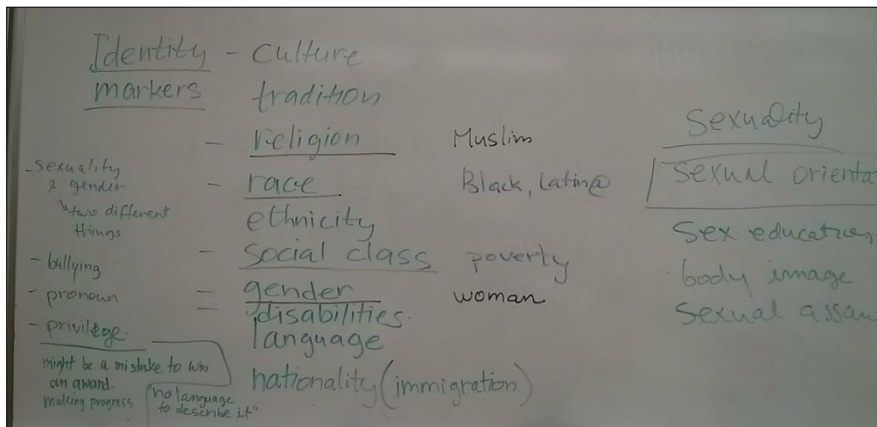 Identity - culture
markers tradition
- religion Muslim
- race Black, Latin@
ethnicity
- social class poverty
= gender woman
disabilities.
language
nationality (immigration)
- sexuality
& gender
two different
things
- bullying
- pronoun
- privilege.
might be a mistake to win
an award.
making progress
"no language
to describe it"
Sexuality
sexual orienta
sex education
body image
sexual assau